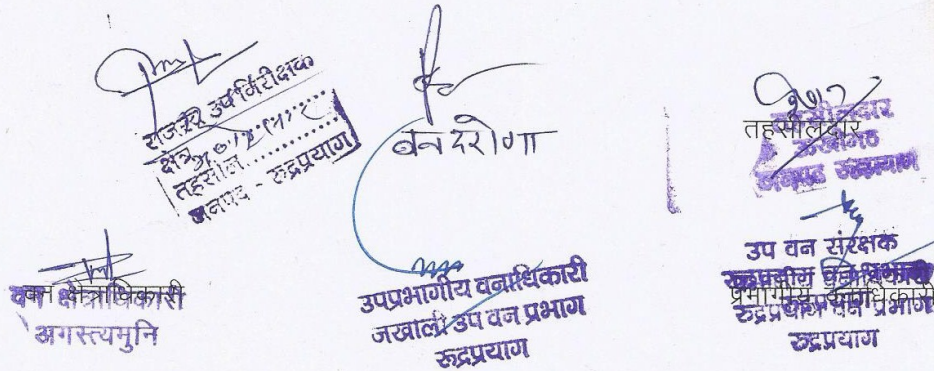 राजस्व उप निरीक्षक
क्षेत्र
तहसील..........
जनपद - रुद्रप्रयाग
वन दरोगा
तहसीलदार
तहसीलदार
ऊखीमठ
जनपद रुद्रप्रयाग
वन क्षेत्राधिकारी
वन क्षेत्राधिकारी
अगस्त्यमुनि
उपप्रभागीय वनाधिकारी
जखोली उप वन प्रभाग
रूद्रप्रयाग
उप वन संरक्षक
रुद्रप्रयाग वन प्रभाग
प्रभागीय वनाधिकारी
रुद्रप्रयाग वन प्रभाग
रुद्रप्रयाग